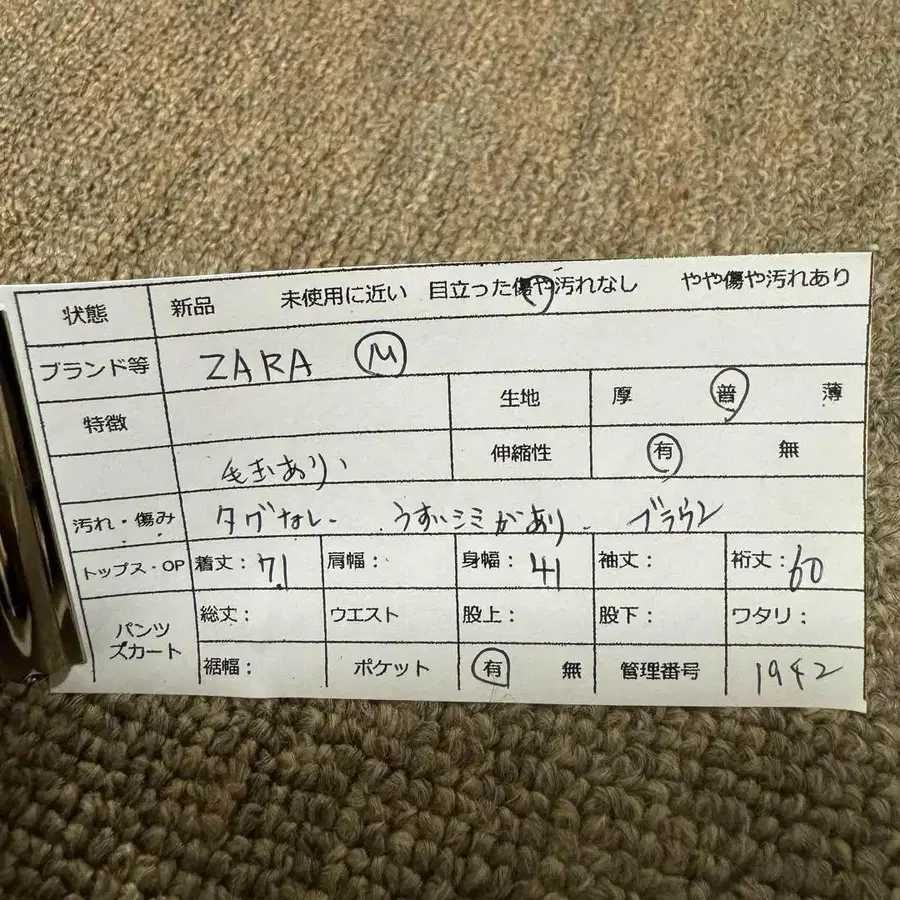 状態 新品 未使用に近い 目立った傷や汚れなし やや傷や汚れあり
ブランド等 ZARA M
特徴 生地 厚 普 薄
毛玉あり、 伸縮性 有 無
汚れ・傷み タグなし. うすいシミがあり. ブラウン
トップス・OP 着丈: 71 肩幅: 身幅: 41 袖丈: 裄丈: 60
パンツ スカート 総丈: ウエスト 股上: 股下: ワタリ:
裾幅: ポケット 有 無 管理番号 1942